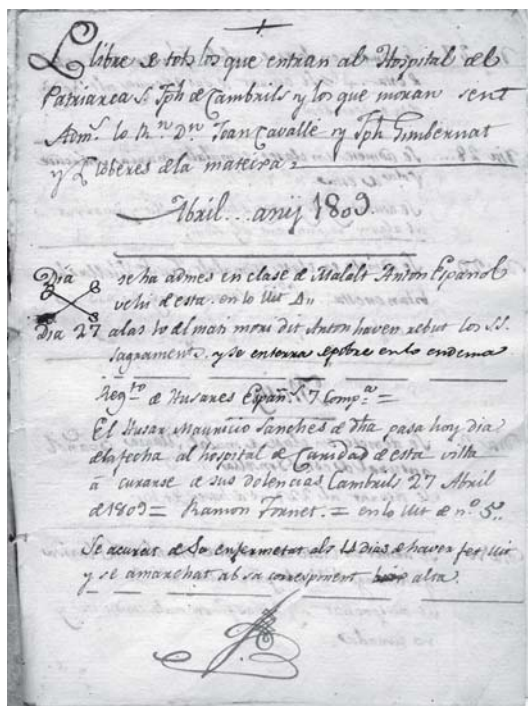 Llibre de tots los que entran al Hospital del
Patriarca S. Jph de Cambrils y los que moran sent
Adm.s lo R.n D.n Joan Cavallé y Jph Gimbernat
y Lloberes de la mateixa.
Abril... any 1809.
Dia se ha admes en clase de Malalt Anton Español
vehi de esta. en lo llit 4,,
Dia 27 a las 10 del mati mori dit Anton haven rebut los SS.
Sagraments. y se enterra en lo endema
Reg.to de Husares Españ.s 7 Comp.a =
El Husar Mauricio Sanches de dha pasa hoy dia
de la fecha al hospital de Caridad de esta villa
a curarse de sus dolencias Cambrils 27 Abril
de 1809 = Ramon Fornet. = en lo llit de n.o 5,,
Se acurat de Sa enfermetat als 14 dias de haver fet llit
y se amarchat ab sa correspinent alta.